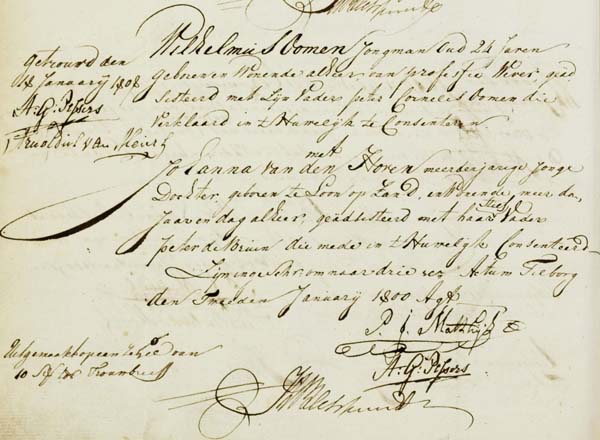 Getrouwd den
18 January 1808
A: G: Pessers
Arnoldus van
Wilhelmus Oomen Jongman Oud 24 Jaren
Geboren en Wonende alhier, van professie Wever, gead
sisteerd met Zijn Vader peter Cornelis Oomen die
Verklaard in 't Huwelijk te Consenteren
met
Johanna van den Hoven meerderjarige Jonge
Dochter, geboren te Loon op Zand, en Woonende meer dan
Jaar en dag alhier, geadsisteerd met haar Stief Vader
peter de Bruin die mede in 't Huwelijk Consenteerd
Zijn Actum Tilborg
den Tweeden January 1800 Agt
P. J.
A: G: Pessers
van
10 Trouwbrieff